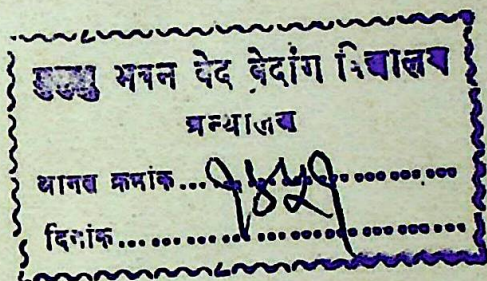 मुमुक्षु भवन वेद वेदांग विद्यालय
ग्रन्थालय
आगत क्रमांक... १४५१ ...
दिनांक...